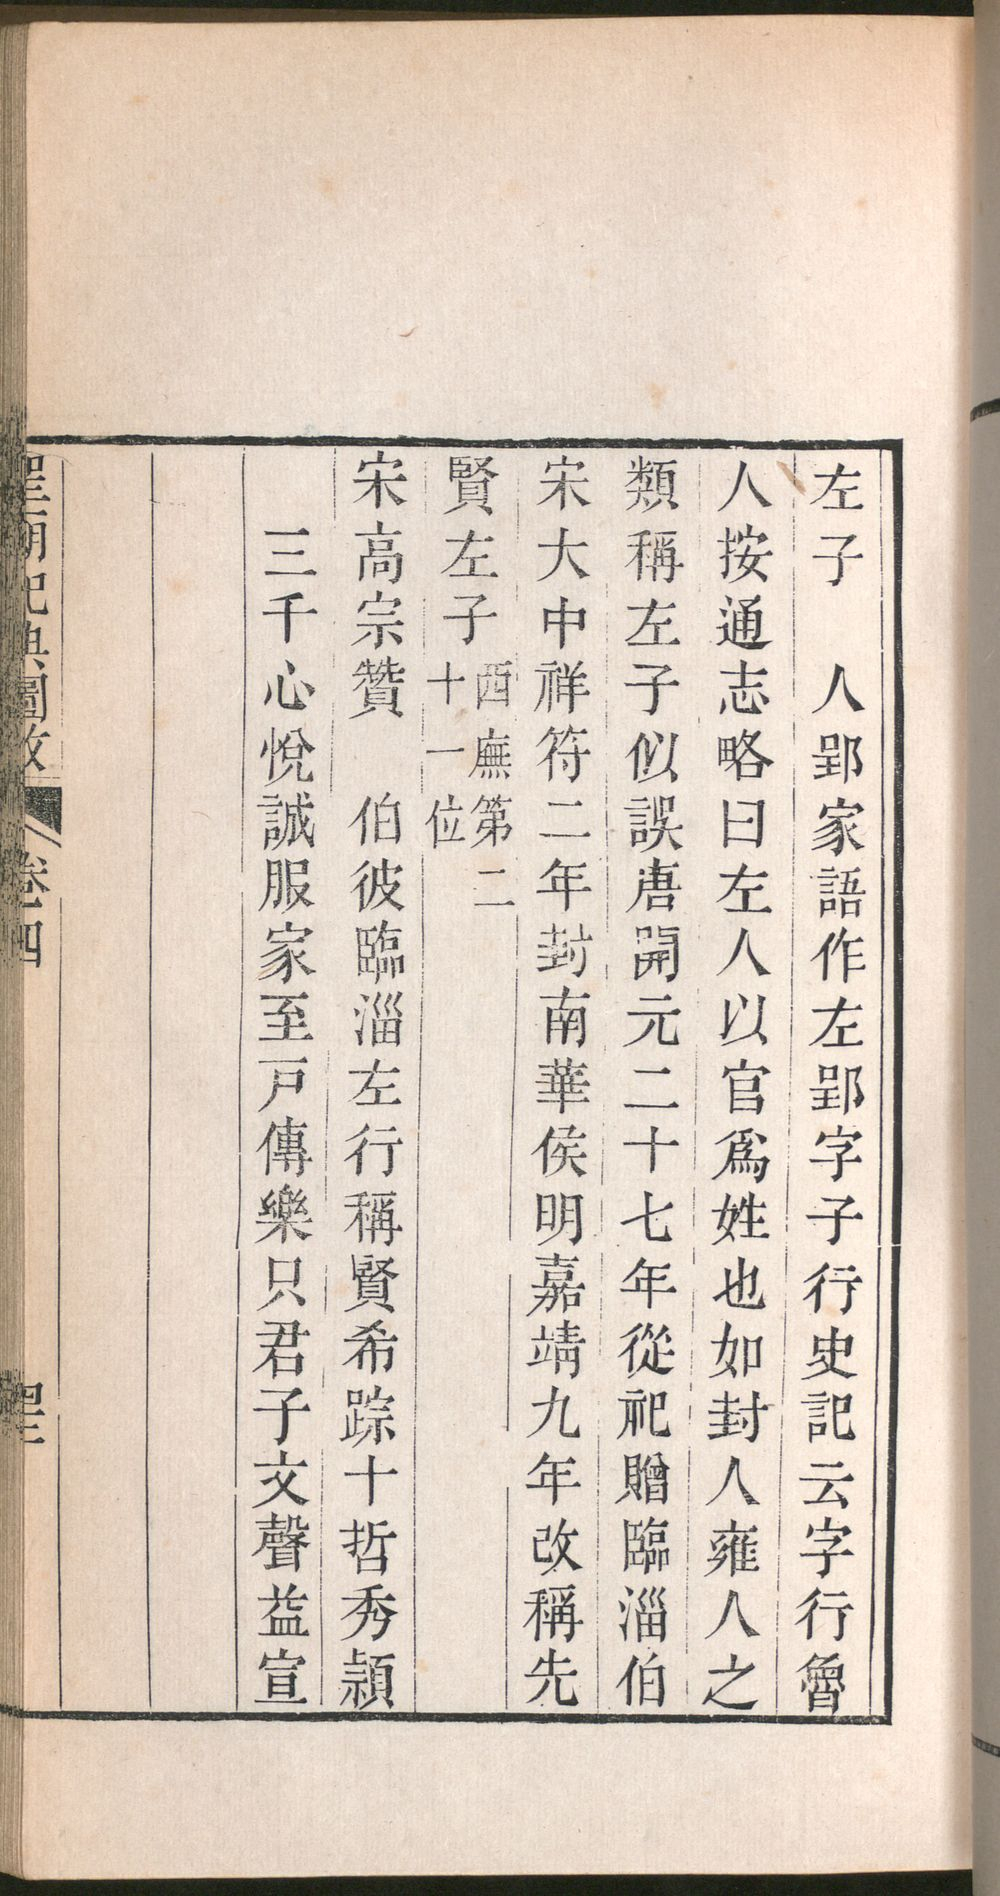 左子　人郢家語作左郢字子行史記云字行魯
人按通志略曰左人以官爲姓也如封人雍人之
類稱左子似誤唐開元二十七年從祀贈臨淄伯
宋大中祥符二年封南華侯明嘉靖九年改稱先
賢左子
西廡第二
十一位
宋高宗贊　伯彼臨淄左行稱賢希踪十哲秀頴
三千心悅誠服家至戸傳樂只君子文聲益宣
聖朝祀典圖攷　卷四　聖